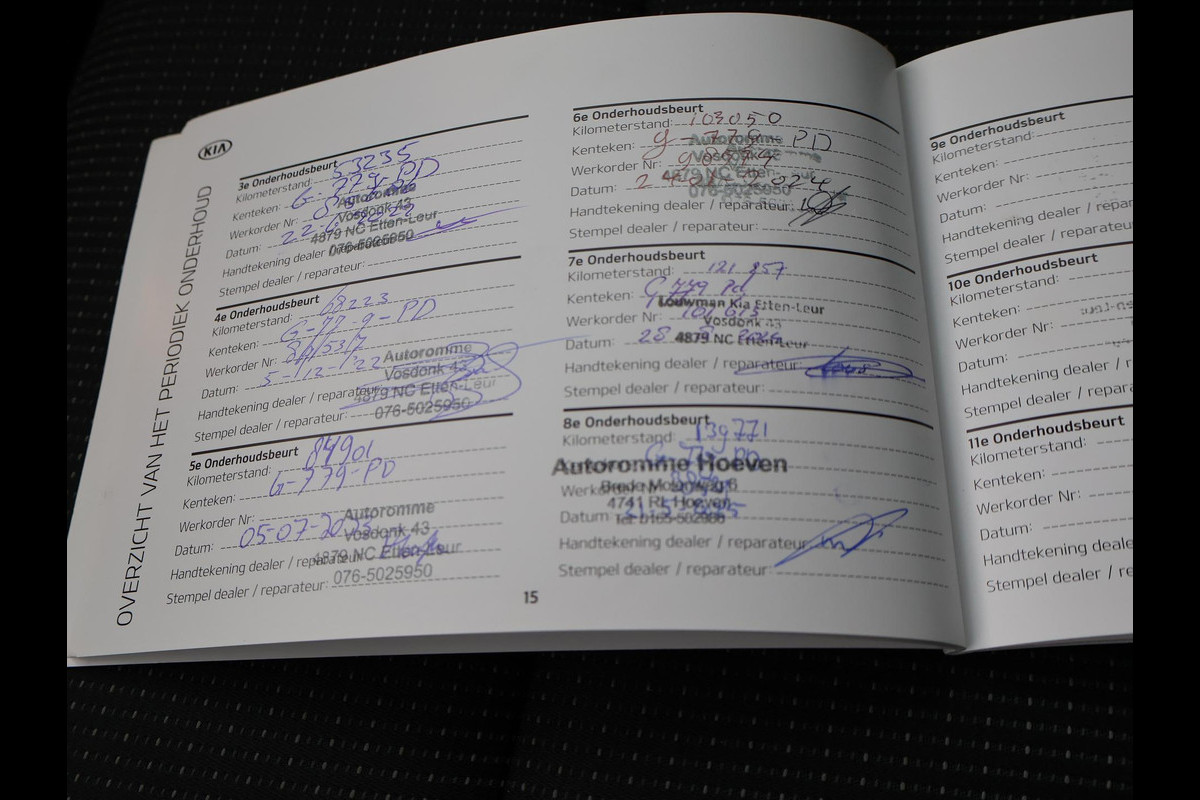 KIA
OVERZICHT VAN HET PERIODIEK ONDERHOUD
3e Onderhoudsbeurt
Kilometerstand: 53235
Kenteken: G-779-PD
Werkorder Nr:
Datum:
Handtekening dealer / reparateur:
Stempel dealer / reparateur:
Autoromme
Vosdonk 43
4879 NC Etten-Leur
076-5025950
4e Onderhoudsbeurt
Kilometerstand: 68223
Kenteken: G-779-PD
Werkorder Nr:
Datum: 5-12-'22
Handtekening dealer / reparateur:
Stempel dealer / reparateur:
Autoromme
Vosdonk 43
4879 NC Etten-Leur
076-5025950
5e Onderhoudsbeurt
Kilometerstand: 84901
Kenteken: G-779-PD
Werkorder Nr:
Datum: 05-07-2023
Handtekening dealer / reparateur:
Stempel dealer / reparateur:
Autoromme
Vosdonk 43
4879 NC Etten-Leur
076-5025950
6e Onderhoudsbeurt
Kilometerstand: 103050
Kenteken: G-779-PD
Werkorder Nr:
Datum:
Handtekening dealer / reparateur:
Stempel dealer / reparateur:
Autoromme
Vosdonk
4879 NC Etten-Leur
076-5025950
7e Onderhoudsbeurt
Kilometerstand: 121 957
Kenteken: G 779 Pd
Werkorder Nr:
Datum: 28
Handtekening dealer / reparateur:
Stempel dealer / reparateur:
Louwman Kia Etten-Leur
Vosdonk 43
4879 NC Etten-Leur
8e Onderhoudsbeurt
Kilometerstand: 139771
Kenteken:
Werkorder Nr:
Datum:
Handtekening dealer / reparateur:
Stempel dealer / reparateur:
Autoromme Hoeven
4741 RL Hoeven
Tel: 0165-502986
15
9e Onderhoudsbeurt
Kilometerstand:
Kenteken:
Werkorder Nr:
Datum:
Handtekening dealer / repar
Stempel dealer / reparateur
10e Onderhoudsbeurt
Kilometerstand:
Kenteken:
Werkorder Nr:
Datum:
Handtekening dealer
Stempel dealer / repa
11e Onderhoudsbeurt
Kilometerstand:
Kenteken:
Werkorder Nr:
Datum:
Handtekening deale
Stempel dealer / re